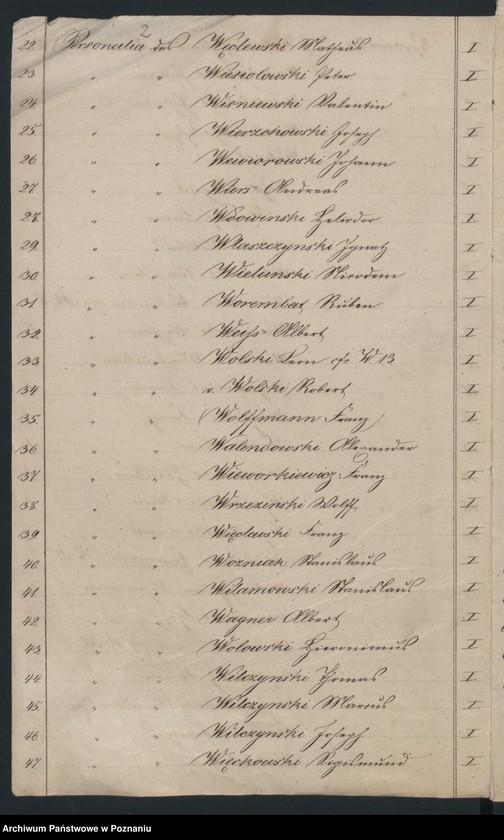 2
22. Personalia des Węclewski Matheus I
23 " " Wiesiolowski Peter I
24 " " Wisniewski Valentin I
25 " " Wierzchowski Joseph I
26 " " Wewiorowski Johann I
27 " " Wiers Andreas I
28. " " Wdowinski Heliodor I
29. " " Właszczynski Ignatz I
30. " " Wielunski Nicodem I
31 " " Worembat Ruben I
32 " " Weiss Albert I
33 " " Wolski Leon cfr. W. 13 I
34 " " v. Wolski Robert I
35. " " Wolffmann Franz I
36 " " Walendowski Alexander I
37 " " Wieworkiewicz Franz I
38 " " Wrzezinski Wolff I
39 " " Węclewski Franz I
40. " " Wozniak Stanislaus I
41. " " Witamowski Stanislaus I
42. " " Wagner Albert I
43. " " Wolowski Hieronimus I
44. " " Wilczynski Thomas I
45. " " Wilczynski Marcus I
46 " " Wilczynski Joseph I
47. " " Więckowski Sigismund I
Archiwum Państwowe w Poznaniu